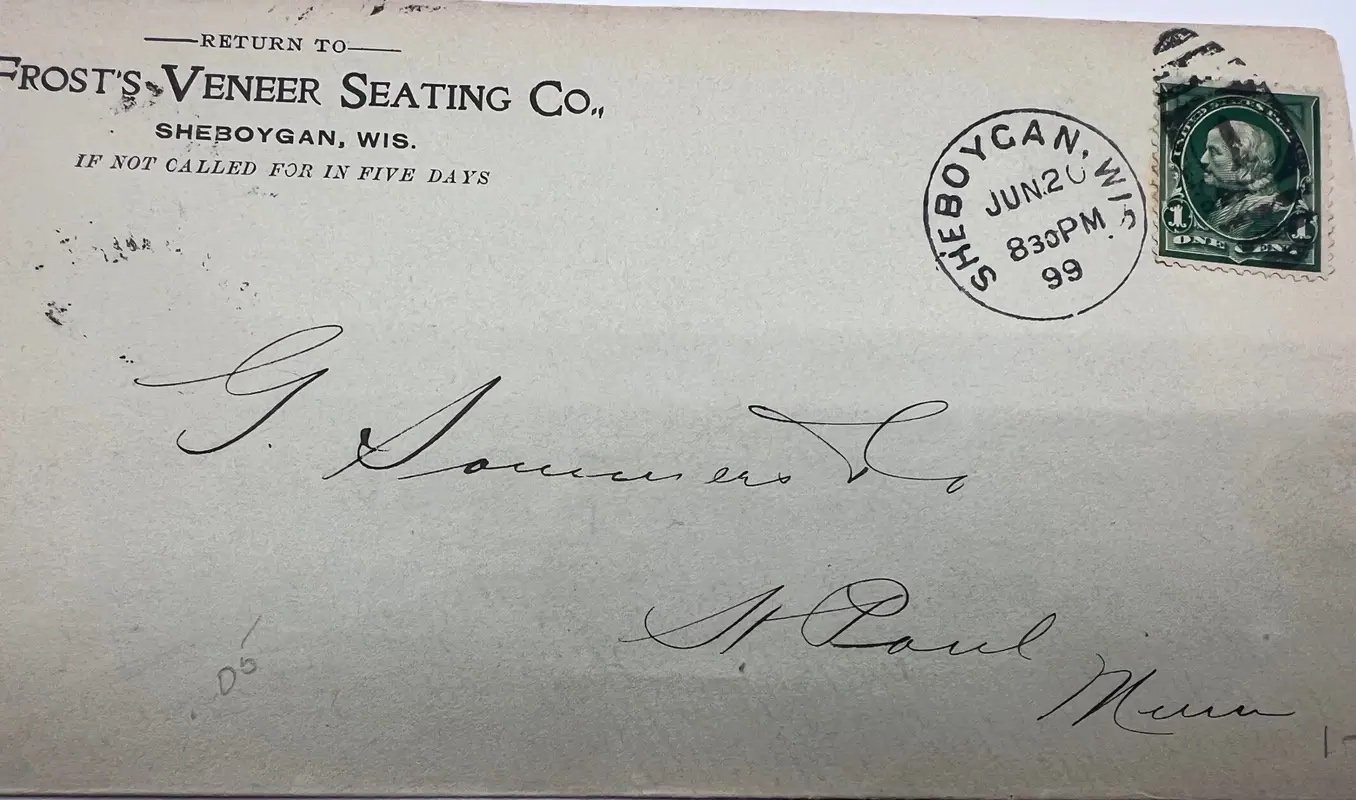 RETURN TO
FROST'S VENEER SEATING CO.,
SHEBOYGAN, WIS.
IF NOT CALLED FOR IN FIVE DAYS
SHEBOYGAN, WIS.
JUN 20
830PM
99
1 1
ONE CENT
G. Sommers & Co
St Paul
Minn